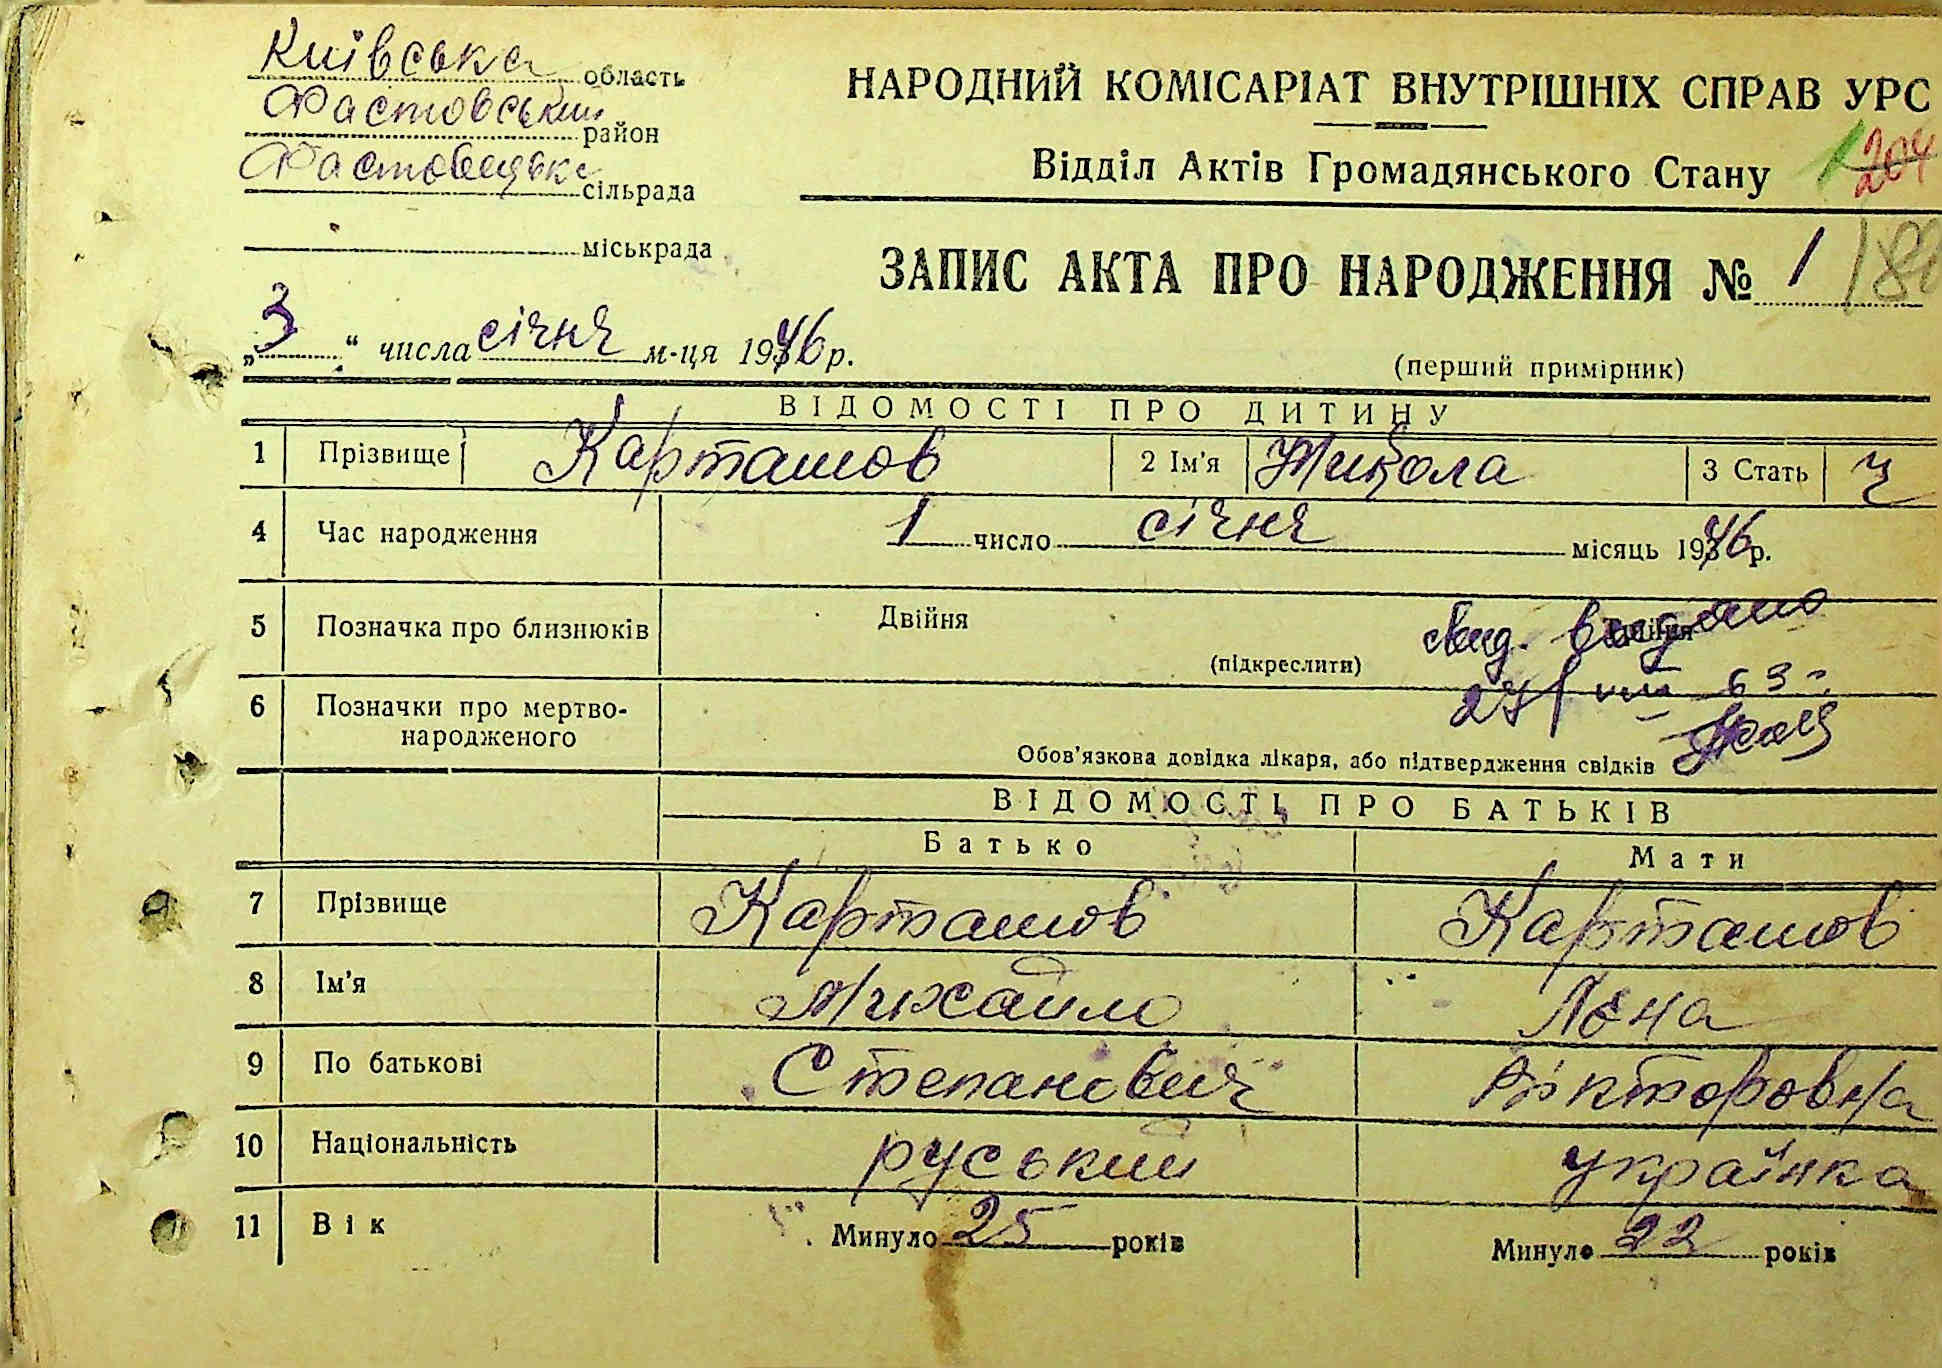 Київська область
Фастовський район
Фастовецька сільрада
міськрада
НАРОДНИЙ КОМІСАРІАТ ВНУТРІШНІХ СПРАВ УРС
Відділ Актів Громадянського Стану
204
ЗАПИС АКТА ПРО НАРОДЖЕННЯ № 1
„3“ числа січня м-ця 1946 р.
(перший примірник)
ВІДОМОСТІ ПРО ДИТИНУ
1 Прізвище Карташов 2 Ім'я Микола 3 Стать ч
4 Час народження 1 число січня місяць 1946 р.
5 Позначка про близнюків Двійня Трійня
(підкреслити)
свид. выдано
27/VIII 63 г.
6 Позначки про мертво-
народженого
Обов'язкова довідка лікаря, або підтвердження свідків
ВІДОМОСТІ ПРО БАТЬКІВ
Батько Мати
7 Прізвище Карташов Карташов
8 Ім'я Михайло Лєна
9 По батькові Степанович Вікторовна
10 Національність руський українка
11 Вік Минуло 25 років Минуло 22 років